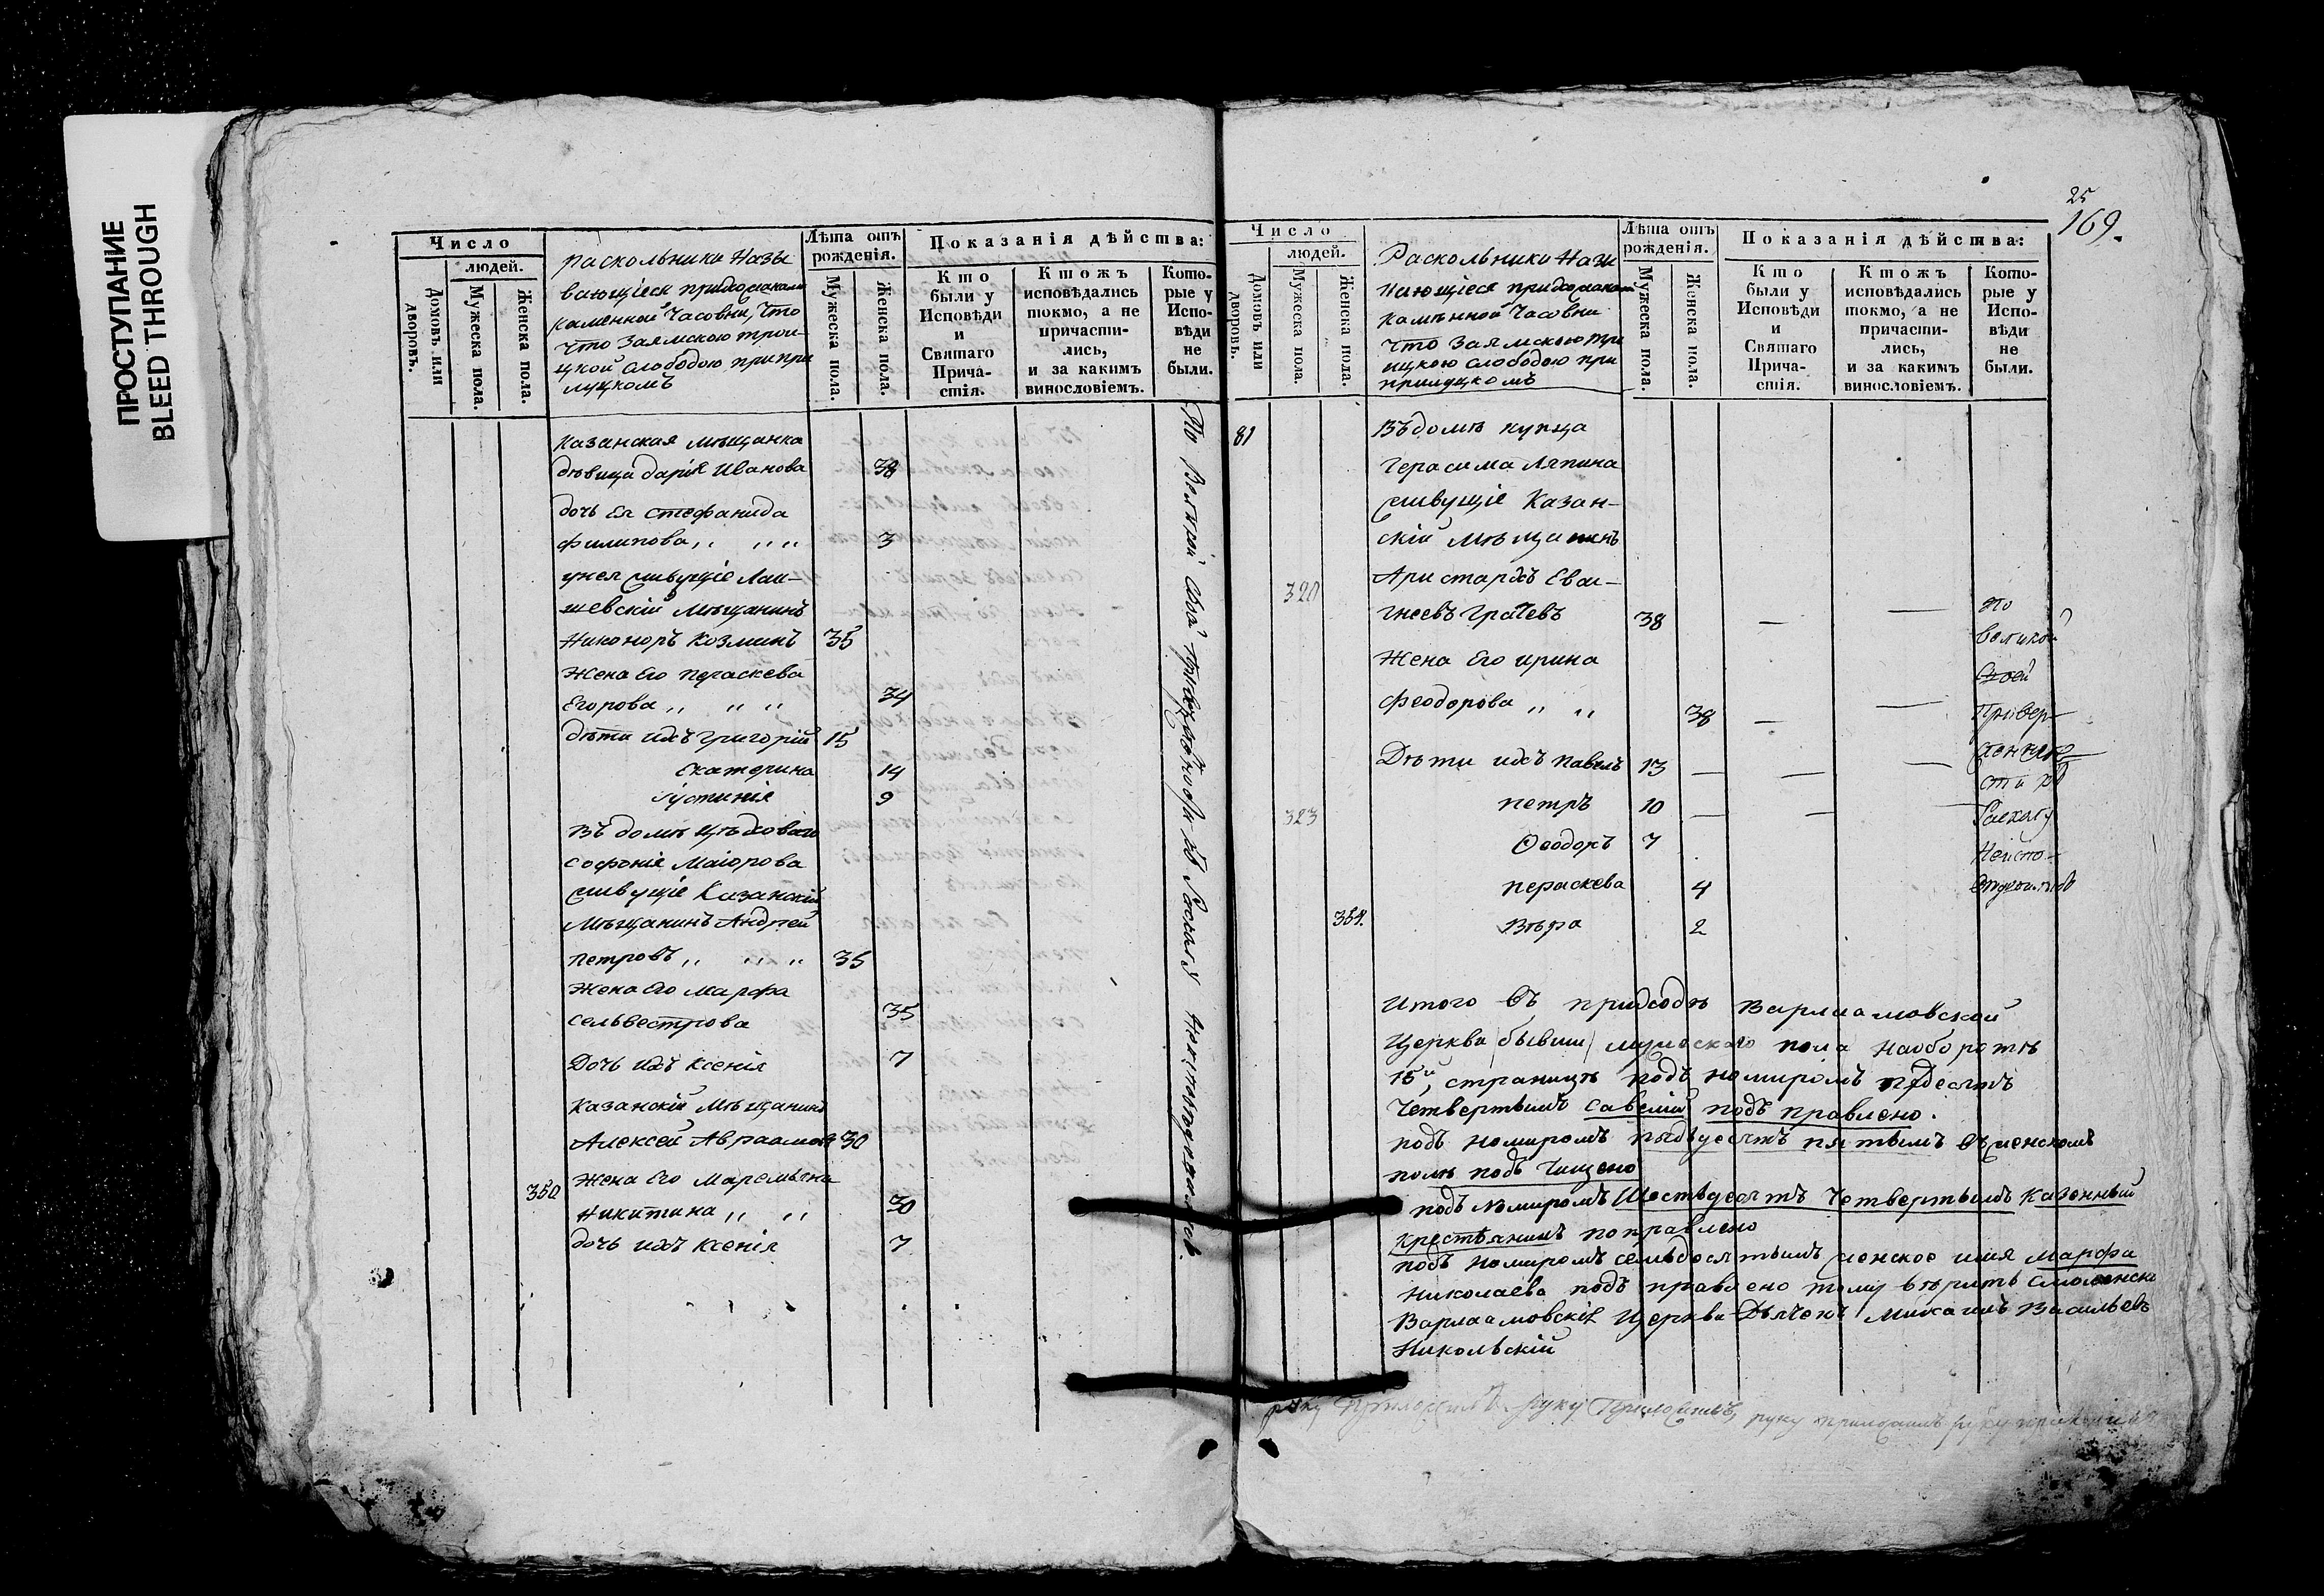 ПРОСТУПАНИЕ
BLEED THROUGH
Число
людей.
Домовъ или дворовъ.
Мужеска пола.
Женска пола.
раскольники Назы
вающіеся прихожанами
каменной Часовни, что
что Заямскою трои-
цкой слободою при при
луцкомъ
Лѣта отъ рожденія.
Мужеска пола.
Женска пола.
Показанія дѣйства:
Кто были у Исповѣди и Святаго Прича- стія.
Ктожъ исповѣдались токмо, а не причасти- лись, и за какимъ винословіемъ.
Кото- рые у Испо- вѣди не были.
Казанская мѣщанка
дѣвица дарія Иванова 38
дочь Ея стефанида
филипова,, ,, ,, 3
унея живущіе Лаи-
шевскій мѣщанинъ
Никоноръ Козминъ 35
Жена Его пераскева
Егорова ,, ,, ,, 34
дѣти ихъ григорій 15
Екатерина 14
Іустинія 9
Въ домѣ цѣховаго
софоніе Маіорова
живущіе Казанскій
Мѣщанинъ Андрей
петровъ ,, ,, ,, 35
Жена Его марфа
сельвестрова 35
Дочь ихъ Ксенія 7
Казанскій мѣщанинъ
Алексей Авраамовъ 30
350 Жена Его Маремьяна
Никитина ,, ,, 30
дочь ихъ Ксенія 7
По Великой своей приверженности къ Расколу неисповедовались
25
169.
Число
людей.
Домовъ или дворовъ.
Мужеска пола.
Женска пола.
Раскольники Назы
вающіеся прихожанами
каменной Часовни
что Заямскою трои
ицкою слободою при
прилуцкомъ
Лѣта отъ рожденія.
Мужеска пола.
Женска пола.
Показанія дѣйства:
Кто были у Исповѣди и Святаго Прича- стія.
Ктожъ исповѣдались токмо, а не причасти- лись, и за какимъ винословіемъ.
Кото- рые у Испо- вѣди не были.
81 Въ домѣ купца
Герасима Ляпина
живущіе Казан-
скій мѣщанинъ
320 Аристархъ Евои-
гнеевъ 38 — — по
великой
Жена Его ирина
своей
Феодорова ,, ,, 38 — — Привер-
Дѣти ихъ павелъ 13 — — —
петръ 10 — — —
323
Расколу
Ѳеодоръ 7
Неиспо-
пераскева 4
354. Вѣра 2
Итого въ приходѣ Варлаамовской
Церкви бывши мужескаго пола наоборотѣ
15й, страницѣ подъ номиромъ пдесятъ
Четвертымъ савелій подъ правлено.
подъ номиромъ пядьдесятъ пятымъ въ женскомъ
полѣ подъ чищено
подъ номиромъ Шестьдесятъ Четвертымъ Казенный
крестьянинъ поправлено
подъ номиромъ семьдесятымъ женское имя марфа
Николаева подъ правлено тому вѣрить смоленско
Варлаамовскія Церкви Дьячекъ Михаилъ Васильевъ
Никольскій
руку Приложилъ руку Приложилъ, руку приложилъ руку приложилъ